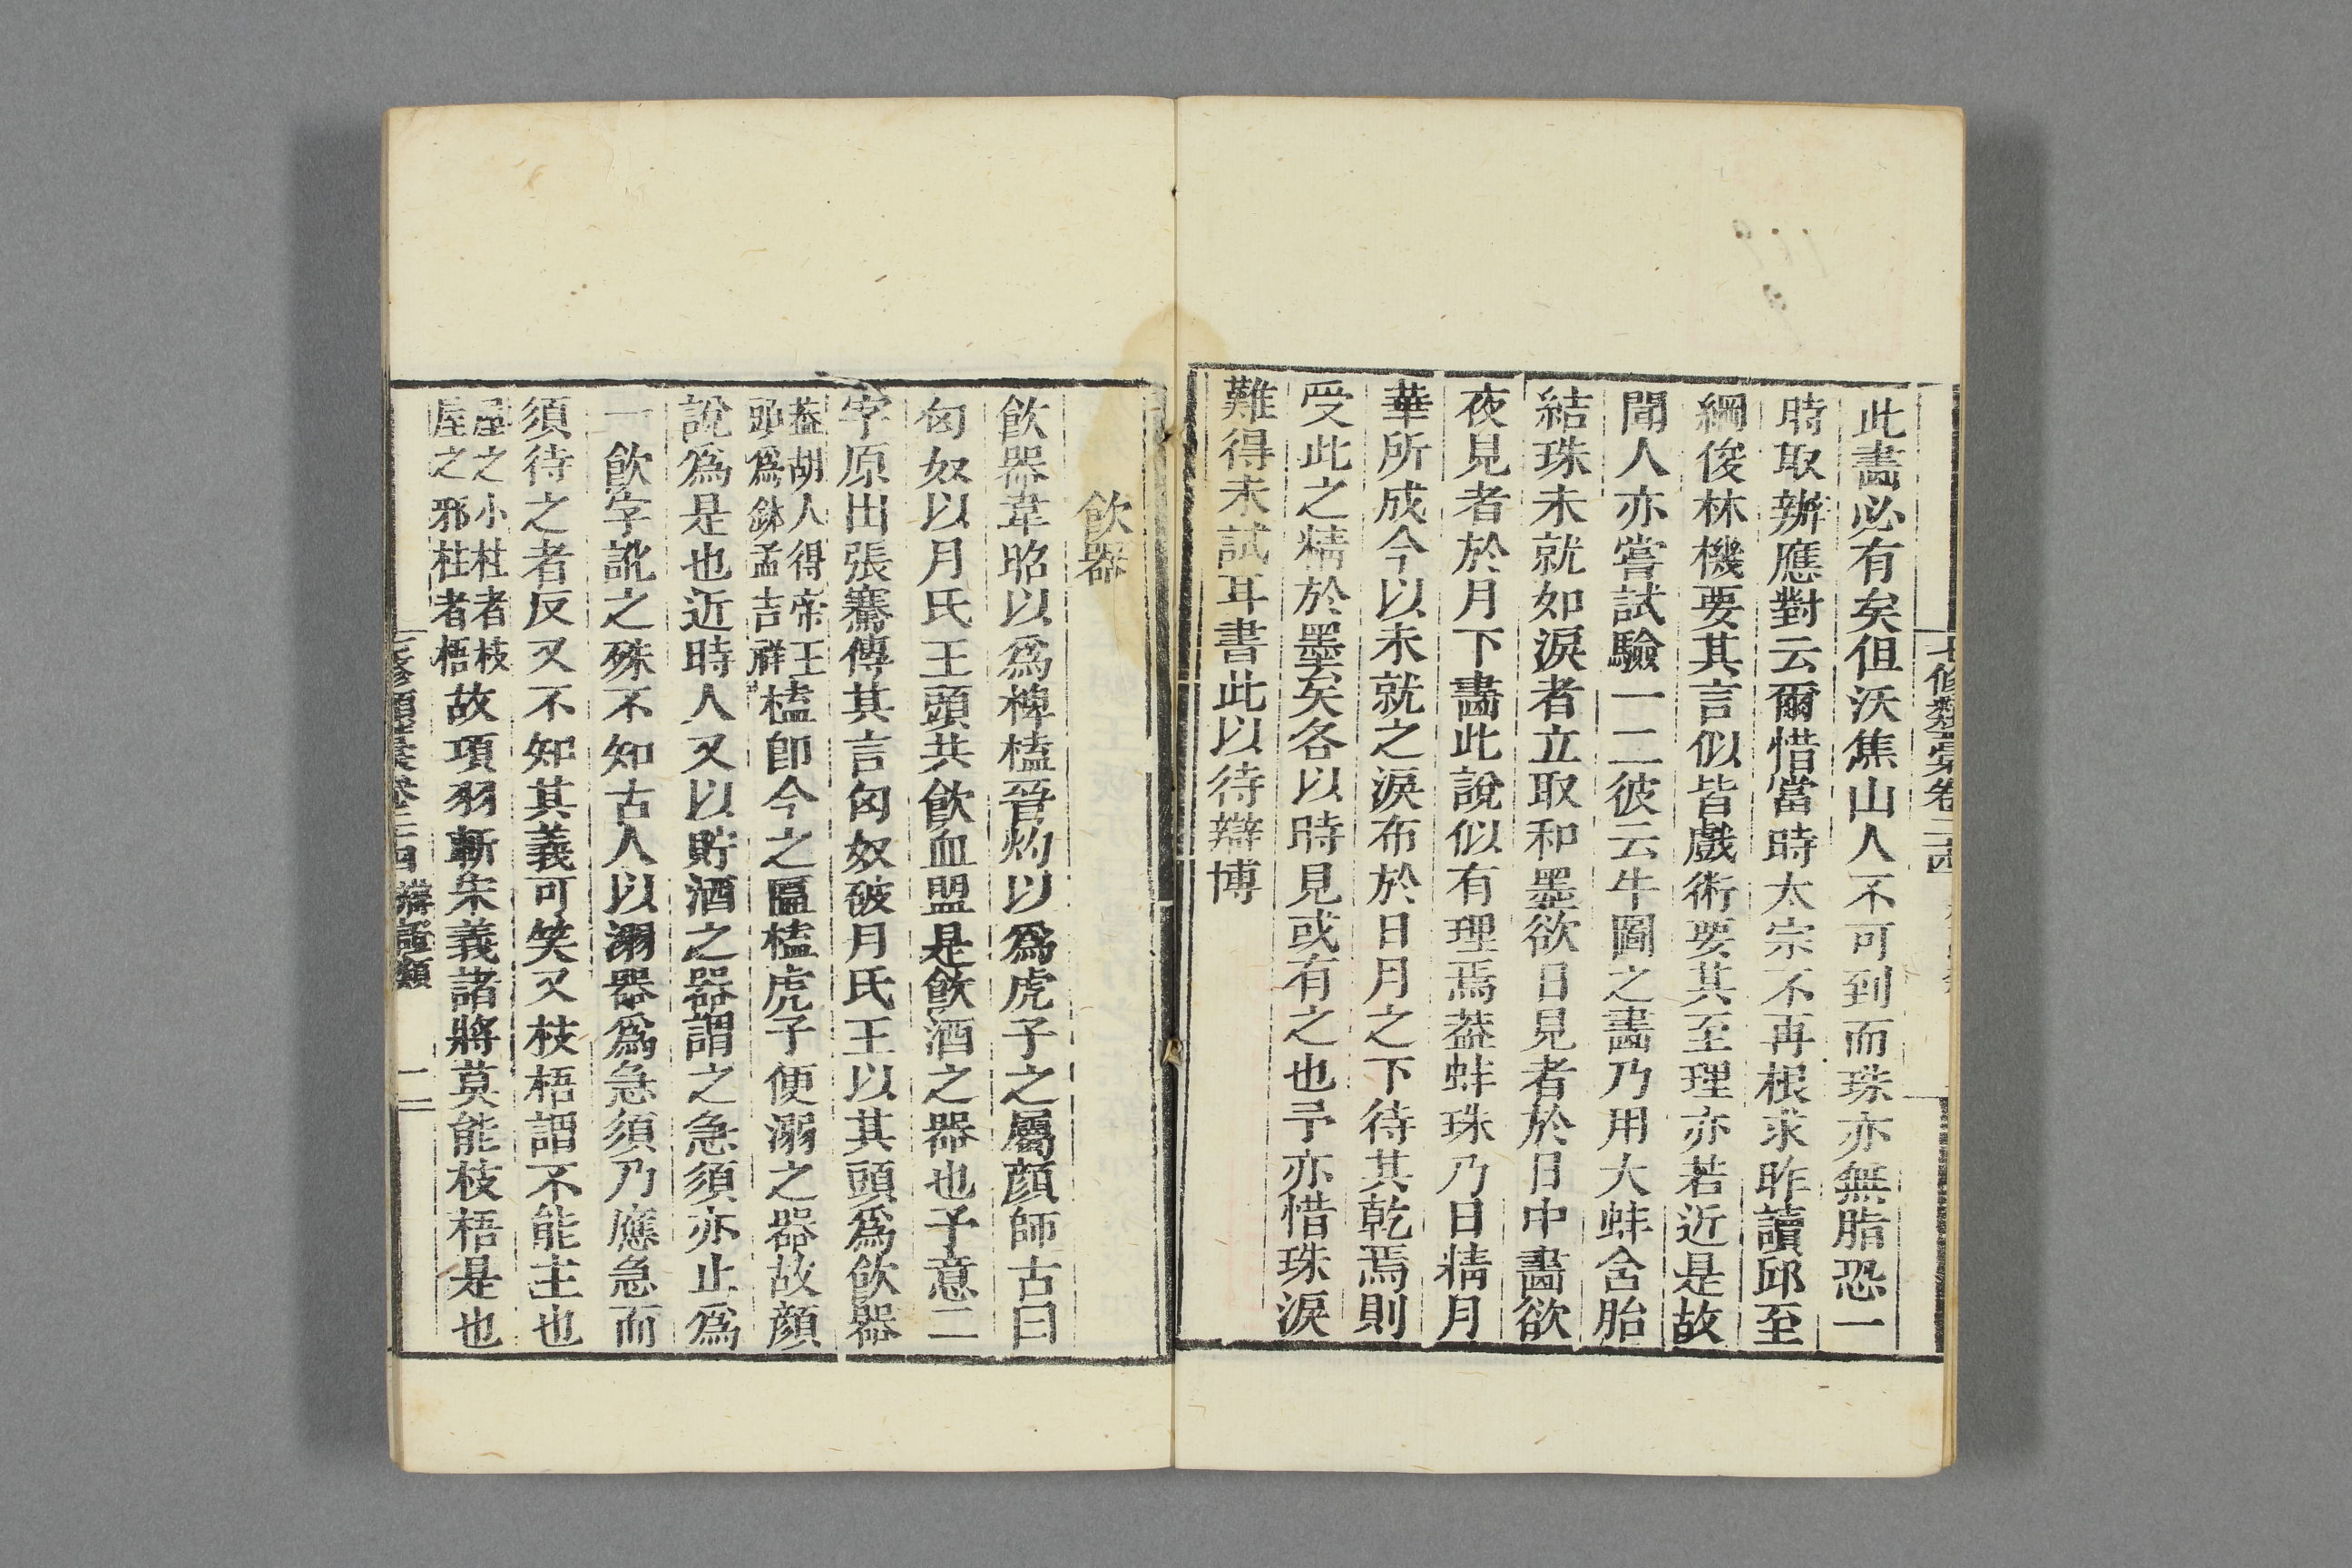 七修類藁卷二十四
此畵必有矣但沃焦山人不可到而珠亦無脂恐一
時取辦應對云爾惜當時太宗不再根求昨讀邱至
綱俊林機要其言似皆戲術要其至理亦若近是故
聞人亦嘗試驗一二彼云牛圖之畵乃用大蚌含胎
結珠未就如淚者立取和墨欲日見者於日中畵欲
夜見者於月下畵此說似有理焉葢蚌珠乃日精月
華所成今以未就之淚布於日月之下待其乾焉則
受此之精於墨矣各以時見或有之也予亦惜珠淚
難得未試耳書此以待辯博
飲器
飲器韋昭以爲椑榼晉灼以爲虎子之屬顏師古曰
匈奴以月氏王頭共飲血盟是飲酒之器也予意二
字原出張騫傳其言匈奴破月氏王以其頭爲飲器
葢胡人得帝王
頭爲鉢盂吉祥榼卽今之匾榼虎子便溺之器故顏
說爲是也近時人又以貯酒之器謂之急須亦止爲
一飲字訛之殊不知古人以溺器爲急須乃應急而
須待之者反又不知其義可笑又枝梧謂不能主也
屋之小柱者枝
屋之邪柱者梧故項羽斬宋義諸將莫能枝梧是也
七修類藁卷二十四 辯證類 二